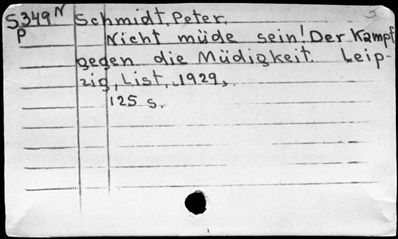 S349N Schmidt, Peter.
P
Nicht müde sein! Der Kampf
gegen die Müdigkeit. Leip-
zig, List, 1929,
125 s.